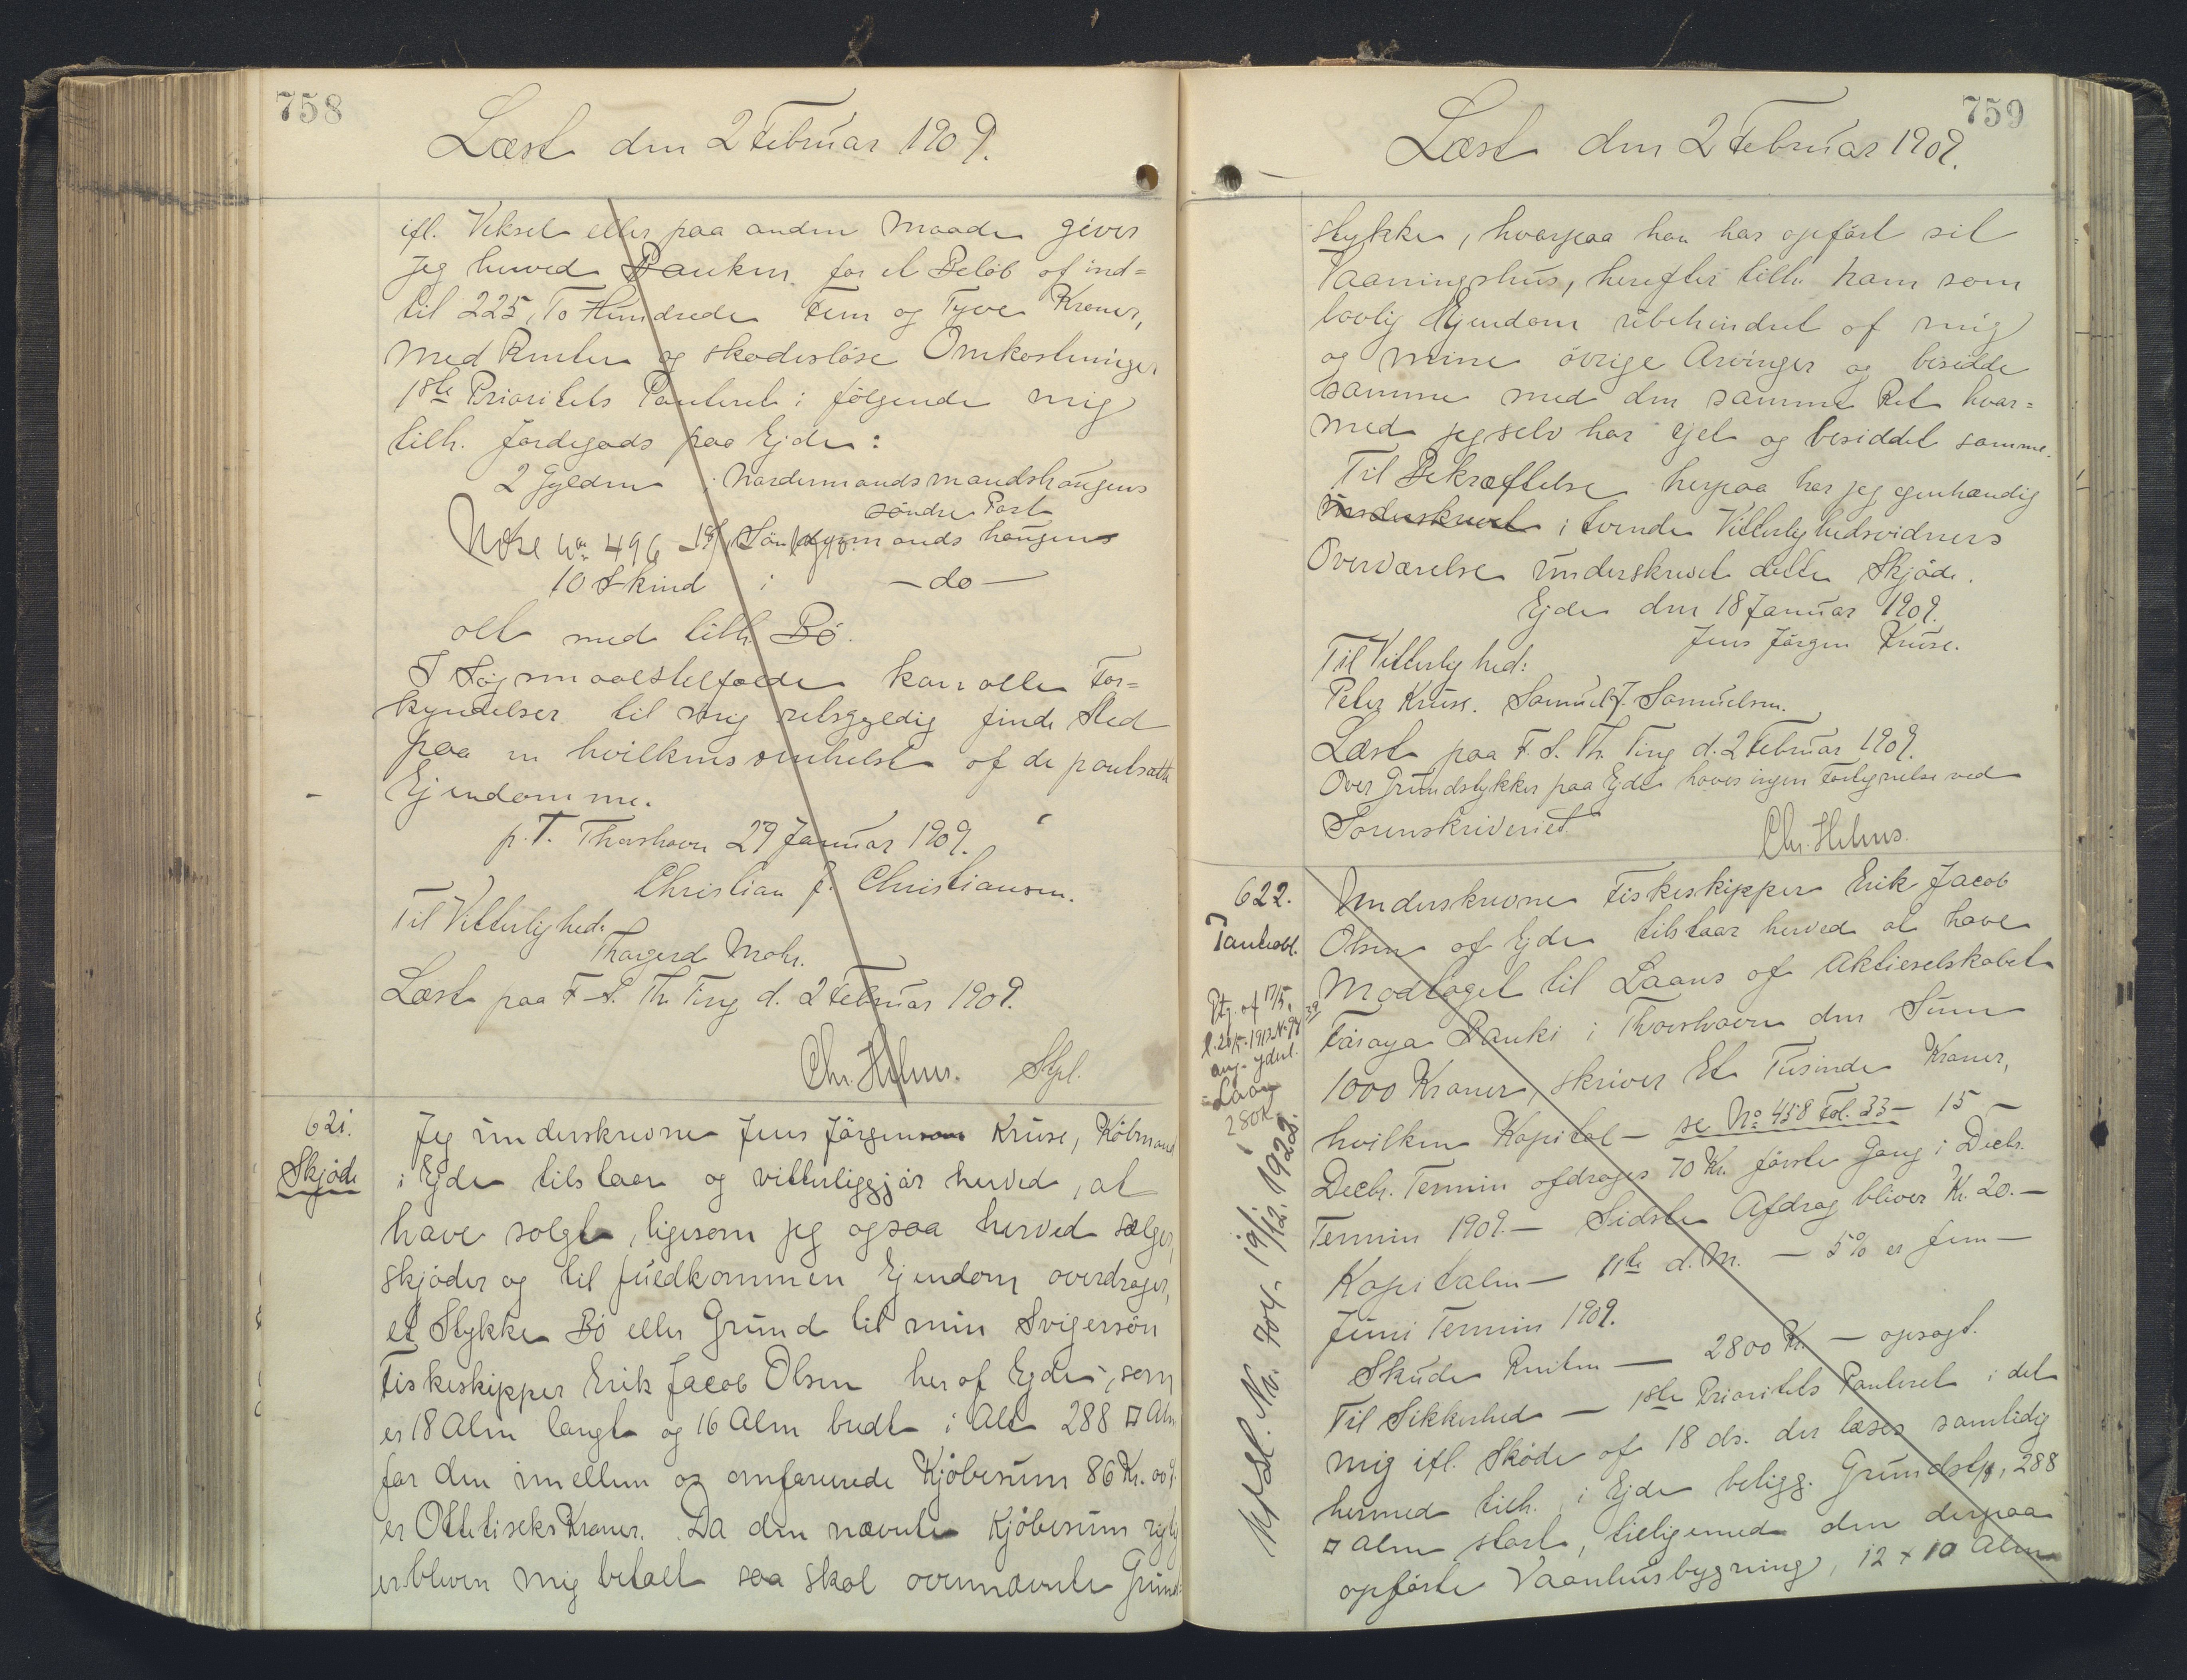 758
Læst den 2 Februar 1909.
ifl. Veksel eller paa anden Maade giver
jeg herved Banken for et Beløb af ind=
til 225, To Hundrede Fem og Tyve Kroner,
med Renter og skadesløse Omkostninger
1ste Prioritets Panteret i følgende mig
tilh. Jordegods paa Ejde:
2 Gylden i Nordermandsmandshaugens
søndre Part
Note No 496
10 Skind i - do -
alt med tilh. Bø.
I Søgmaalstilfælde kan alle For=
kyndelser til mig retsgyldig finde Sted
paa en hvilkensomhelst af de pantsatte
Ejendomme.
p. T. Thorshavn 29 Januar 1909.
Christian J. Christiansen.
Til Vitterlighed:
Thogerd Mohr.
Læst paa F. S. Th. Ting d. 2 Februar 1909.
Chr. Helms. Stpl.
621.
Skjøde
Jeg underskrevne Jens Jørgen Kruse, Købmand
i Ejde tilstaar og vitterliggjør herved, at
have solgt, ligesom jeg ogsaa herved sælger,
skjøder og til fuldkommen Ejendom overdrager,
et Stykke Bø eller Grund til min Svigersøn
Fiskeskipper Erik Jacob Olsen her af Ejde, som
er 18 Alen langt og 16 Alen bredt i Alt 288 □ Alen
for den imellem os omforenede Kjøbesum 86 Kr. 00 Ø.
er Ottetiseks Kroner. Da den nævnte Kjøbesum rigtig
er bleven mig betalt saa skal ovennævnte Grund=
759
Læst den 2 Februar 1909.
stykke, hvorpaa han har opført sit
Vaaningshus, herefter tilh. ham som
lovlig Ejendom ubehindret af mig
og mine øvrige Arvinger og besidde
samme med den samme Ret hvor=
med jeg selv har ejet og besiddet samme.
Til Bekræftelse herpaa har jeg egenhændig
underskrevet i tvende Vitterlighedsvidners
Overværelse underskrevet dette Skjøde.
Ejde den 18 Januar 1909.
Jens Jørgen Kruse.
Til Vitterlighed:
Peter Kruse. Samuel J. Samuelsen.
Læst paa F. S. Th. Ting d. 2 Februar 1909.
Over Grundstykker paa Ejde haves ingen Forlignelse ved
Sorenskriveriet.
Chr. Helms.
622.
Panteobl.
Ptg. af 17/5,
l. 20/5-1913 No 94
ang. yderl.
Laan
280K.
Underskrevne Fiskeskipper Erik Jacob
Olsen af Ejde tilstaar herved at have
modtaget til Laans af Aktieselskabet
Færøya Banki i Thorshavn den Sum
1000 Kroner, skriver Et Tusinde Kroner,
hvilken Kapital - se No 458 Fol. 33 - 15 -
Decbr. Termin afdrages 70 Kr. første Gang i Decbr.
Termin 1909. - Sidste Afdrag bliver Kr. 20. -
Kapitalen - 11te d. M. - 5% er fem -
Juni Termin 1909.
Skude Renten - 2800 Kr. - opsagt.
Til Sikkerhed - 1ste Prioritets Panteret i det
mig ifl. Skøde af 18 ds. der læses samtidig
hermed tilh. i Ejde beligg. Grundstk., 288
□ Alen stort, tilligemed den derpaa
opførte Vaanhusbygning, 12 x 10 Alen
No. 704. 19/12. 1928.